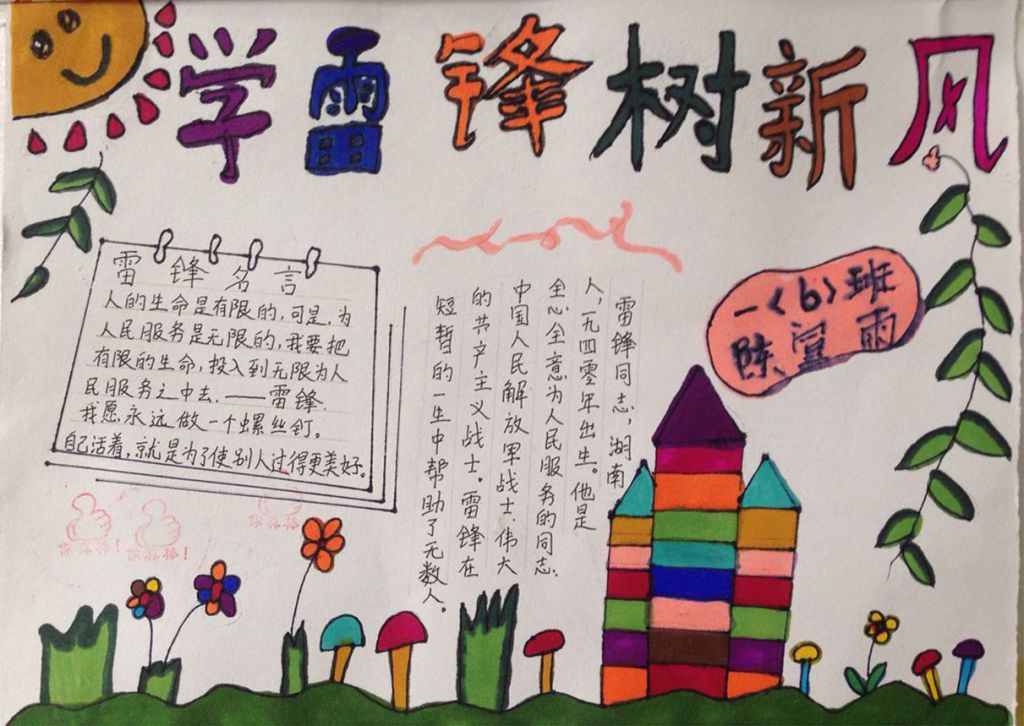 学雷锋树新风
雷锋名言
人的生命是有限的,可是,为
人民服务是无限的,我要把
有限的生命,投入到无限为人
民服务之中去.——雷锋.
我愿永远做一个螺丝钉。
自己活着,就是为了使别人过得更美好。
雷锋同志,湖南
人,一九四零年出生。他是
全心全意为人民服务的同志、
中国人民解放军战士、伟大
的共产主义战士。雷锋在
短暂的一生中帮助了无数人。
一<6>班
陈宣雨
你真棒!
你真棒!
你真棒